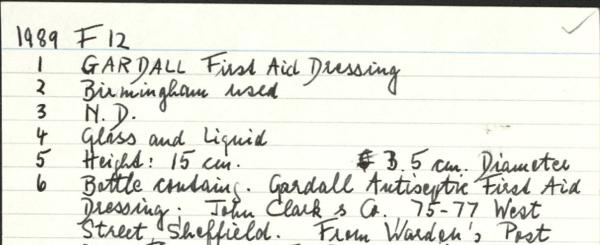 1989 F12
1 GARDALL First Aid Dressing
2 Birmingham used
3 N.D.
4 Glass and Liquid
5 Height: 15 cm. 3.5 cm. Diameter
6 Bottle containg. Gardall Antiseptic First Aid
Dressing. John Clark & Co. 75-77 West
Street, Sheffield. From Warden's Post